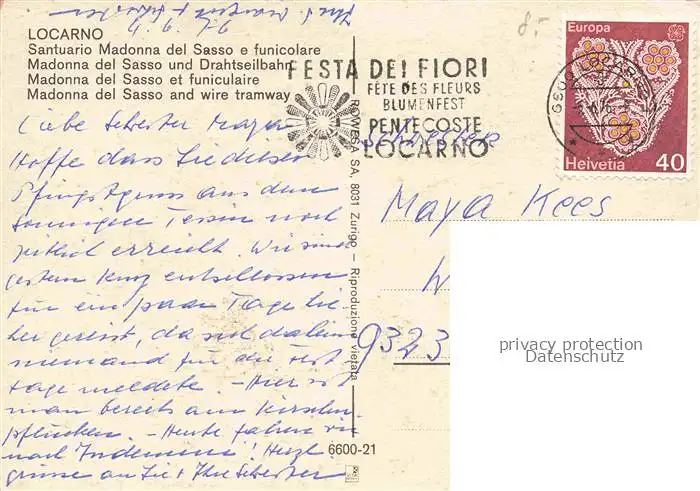 LOCARNO
Santuario Madonna del Sasso e funicolare
Madonna del Sasso und Drahtseilbahn
Madonna del Sasso et funiculaire
Madonna del Sasso and wire tramway
Liebe Schwester Maya
Hoffe dass Sie dieser
Pfingstgruss aus dem
sonnigen Tessin noch
zeitlich erreicht. Wir sind
gestern kurz entschlossen
für ein paar Tage hie
her gereist, da sich daheim
niemand für die Fest
tage meldete. - Hier ist
man bereits am Kirschen
pflücken. - Heute fahren wir
nach Indemini! Herzl.
grüsse an Sie + Ihre Schwester
8.-
FESTA DEI FIORI
FÊTE DES FLEURS
BLUMENFEST
PENTECOSTE
LOCARNO
Europa
Helvetia 40
ROWESA SA, 8031 Zurigo - Riproduzione vietata
6600-21
Schwester
Maya Kees
W
9323
privacy protection
Datenschutz